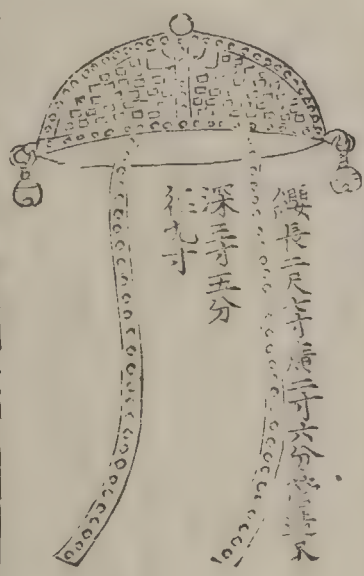 纓長二尺五寸濶二寸六分
深三寸五分
徑九寸